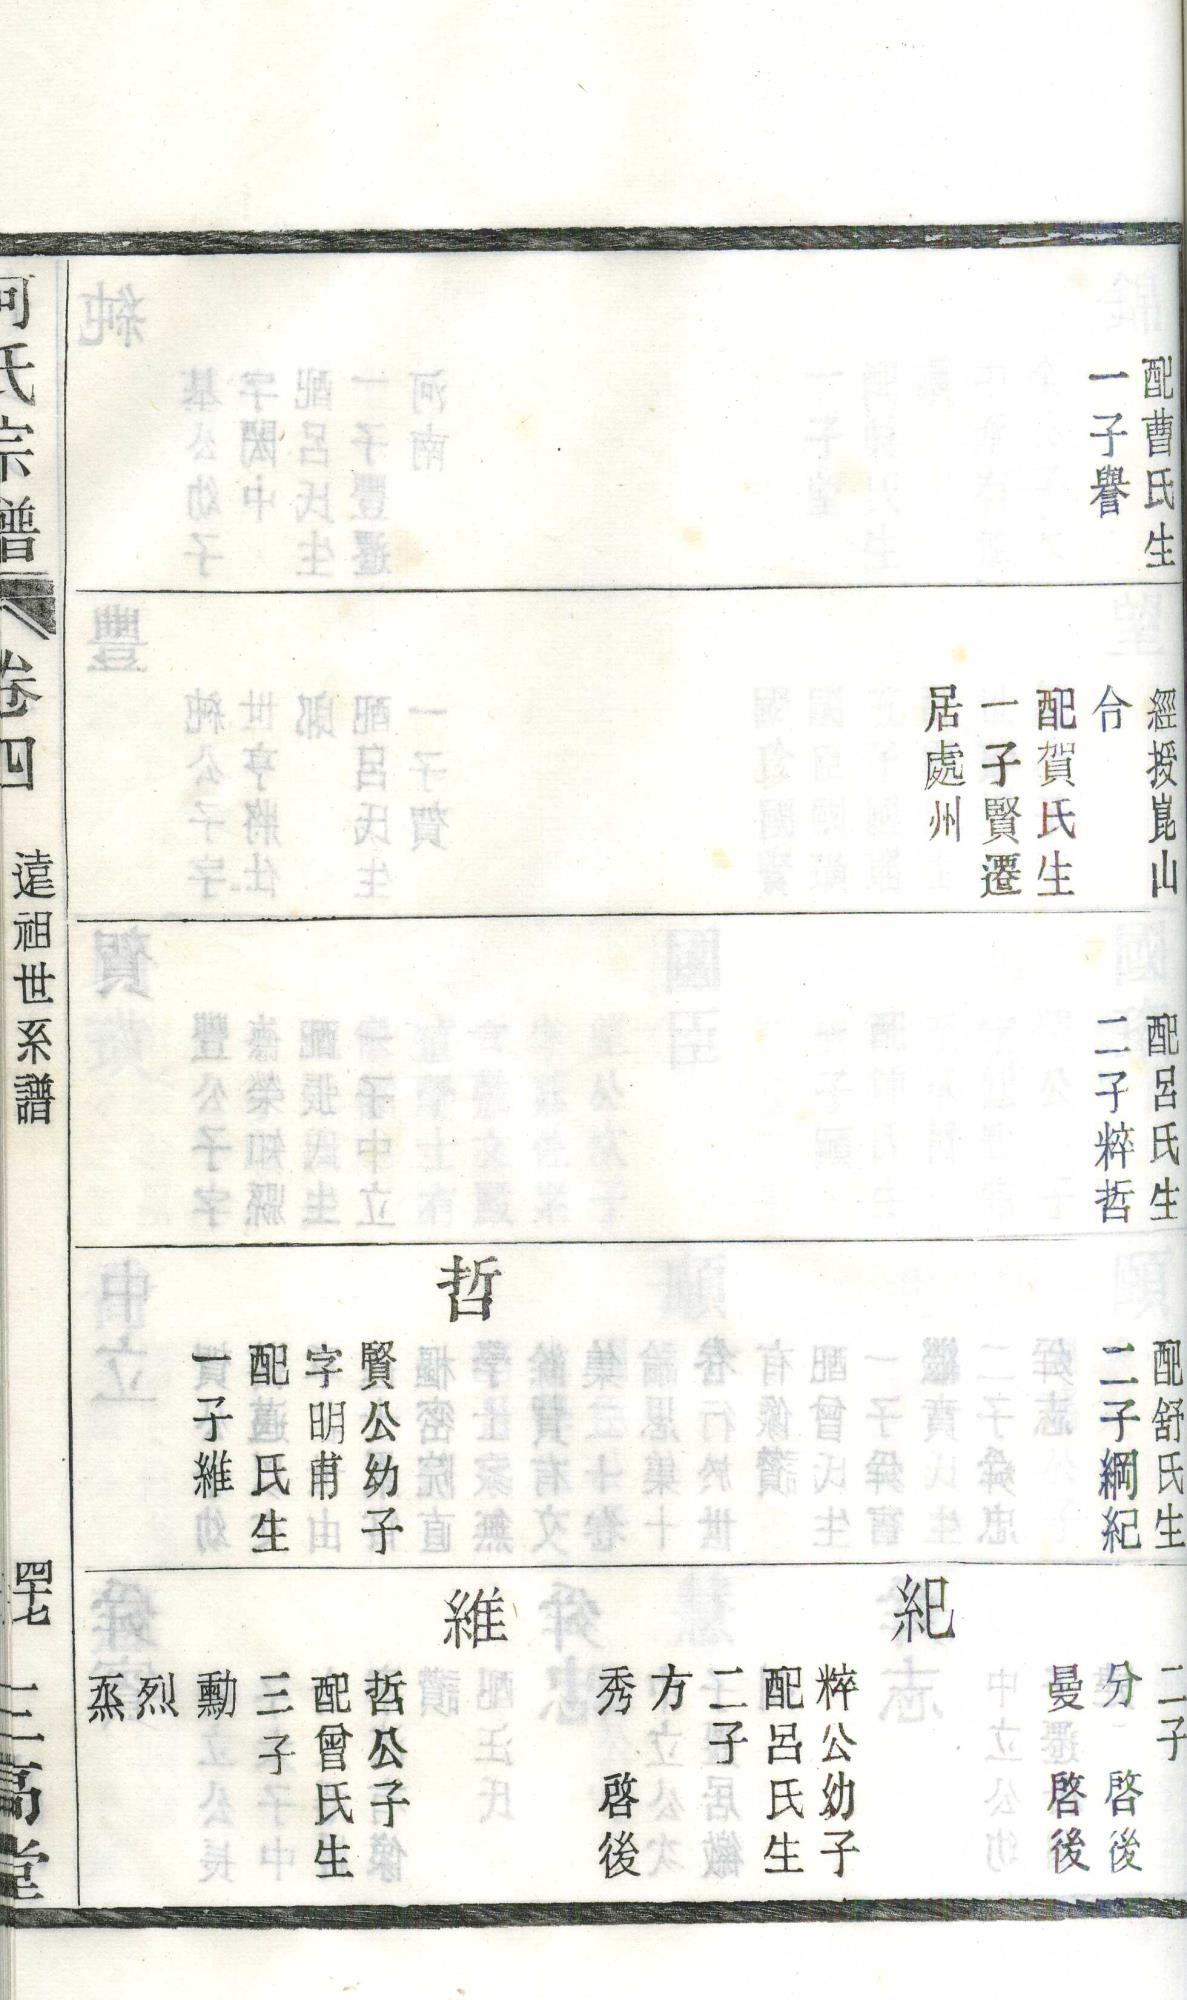 配曹氏生
一子譽
經授崑山
令
配賀氏生
一子賢遷
居處州
配呂氏生
二子粹哲
配舒氏生
二子綱紀
哲
賢公幼子
字明甫
配適氏生
一子維
二子
分 啓後
曼 啓後
紀
粹公幼子
配呂氏生
二子
方
秀 啓後
維
哲公子
配曾氏生
三子
勳
烈
烝
何氏宗譜 卷四 遠祖世系譜 四十七 三高堂